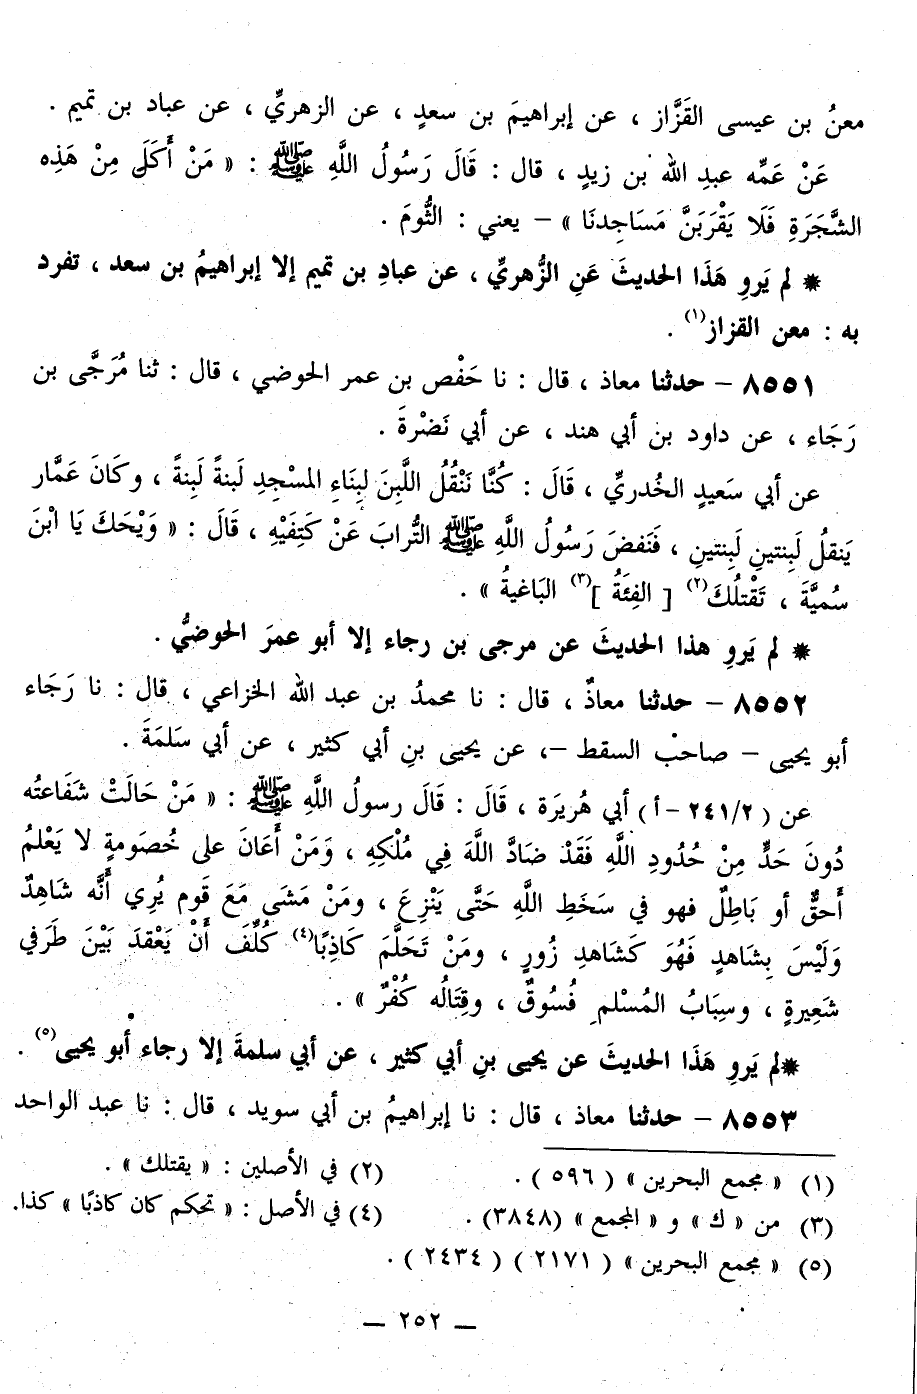 معنُ بن عيسى القَزَّاز ، عن إبراهيمَ بن سعدٍ ، عن الزهريِّ ، عن عباد بن تميم .
عَنْ عَمِّه عبدِ الله بن زيدٍ ، قال : قَالَ رَسُولُ اللَّهِ ﷺ : « مَنْ أَكَلَ مِنْ هَذِه
الشَّجَرَةِ فَلَا يَقْرَبَنَّ مَسَاجِدنَا » – يعني : الثُّومَ .
* لم يَروِ هَذَا الحديثَ عَنِ الزُّهريِّ ، عن عبادِ بن تميم إلا إبراهيمُ بن سعد ، تفرد
به : معن القزاز(١) .
٨٥٥١ – حدثنا معاذ ، قال : نا حَفْص بن عمر الحوضي ، قال : ثنا مُرَجَّى بن
رَجَاء ، عن داود بن أبي هند ، عن أبي نَضْرةَ .
عن أبي سَعيدٍ الخُدريِّ ، قَالَ : كُنَّا نَنْقُلُ اللَّبِنَ لِبِنَاءِ المسْجِدِ لَبنةً لَبِنةً ، وكَانَ عَمَّار
يَنقلُ لَبِنتينِ لَبِنتينِ ، فَنَفضَ رَسُولُ اللَّهِ ﷺ التُّرابَ عَنْ كَتِفَيْهِ ، قَالَ : « وَيْحَكَ يَا ابْنَ
سُميَّةَ ، تَقْتلُكَ(٢) [ الفِئَةُ ](٣) البَاغيةُ » .
* لم يَروِ هذا الحديثَ عن مرجى بن رجاء إلا أبو عمرَ الحوضيُّ .
٨٥٥٢ – حدثنا معاذٌ ، قال : نا محمدُ بن عبد الله الخزاعي ، قال : نا رَجَاء
أبو يحيى – صاحب السقط –، عن يحيى بنِ أبي كثير ، عن أبي سَلمَةَ .
عن ( ٢٤١/٢ – أ ) أبي هُريرَة ، قَالَ : قَالَ رسولُ اللَّهِ ﷺ : « مَنْ حَالَتْ شَفَاعتُه
دُونَ حَدٍّ مِنْ حُدُودِ اللَّهِ فَقَدْ ضَادَّ اللَّهَ فِي مُلْكِهِ ، وَمَنْ أَعَانَ على خُصَومةٍ لا يَعْلمُ
أَحقٌّ أو بَاطِلٌ فهو في سَخَطِ اللَّهِ حَتَّى يَنْزِعَ ، ومَنْ مَشَى مَعَ قَوم يُرِي أَنَّه شَاهِدٌ
وَلَيْسَ بِشاهدٍ فَهُوَ كَشَاهدِ زُورٍ ، ومَنْ تَحَلَّمَ كَاذِبًا(٤) كُلِّفَ أَنْ يَعْقدَ بَيْنَ طَرَفي
شَعِيرةٍ ، وسِبَابُ المُسْلمِ فُسُوقٌ ، وقِتَالُه كُفْرٌ » .
* لم يَروِ هَذَا الحديثَ عن يحيى بنِ أبي كثير ، عن أبي سلمةَ إلا رجاء أبو يحيى(٥) .
٨٥٥٣ – حدثنا معاذ ، قال : نا إبراهيمُ بن أبي سويد ، قال : نا عبد الواحد
(١) « مجمع البحرين » ( ٥٩٦ ) . (٢) في الأصلين : « يقتلك » .
(٣) من « ك » و « المجمع » (٣٨٤٨) . (٤) في الأصل : « تحكم كان كاذبًا » كذا.
(٥) « مجمع البحرين » ( ٢١٧١ ) ( ٢٤٣٤ ) .
– ٢٥٢ –